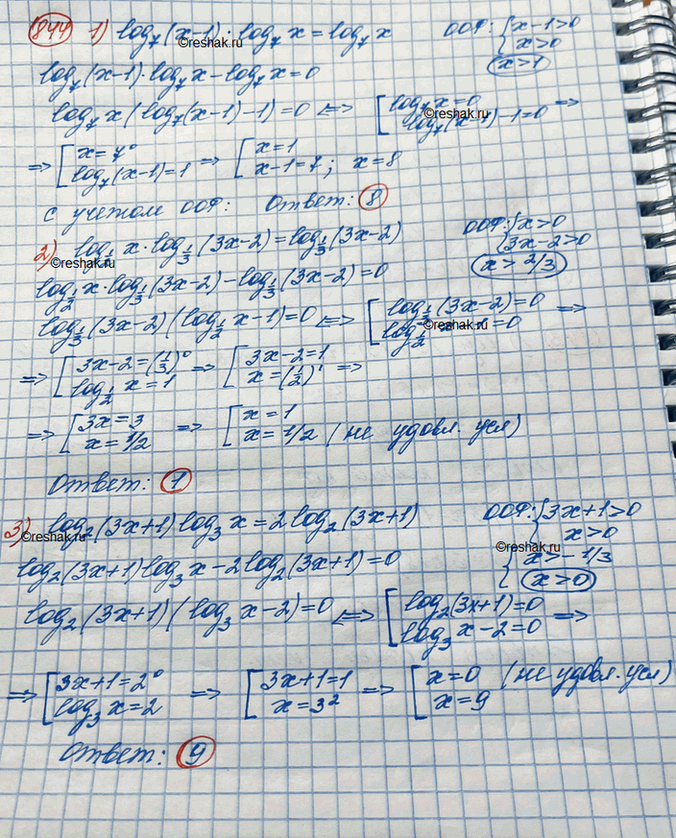 844 1) log₇(x-1)·log₇x=log₇x ООФ: {x-1>0
x>0
x>1
©reshak.ru
log₇(x-1)·log₇x-log₇x=0
log₇x(log₇(x-1)-1)=0 <=> [log₇x=0
log₇(x-1)-1=0 =>
=> [x=7⁰
log₇(x-1)=1 => [x=1
x-1=7; x=8
с учетом ООФ: Ответ: 8
2) log½ x·log⅓(3x-2)=log⅓(3x-2) ООФ: {x>0
3x-2>0
x>2/3
©reshak.ru
log½ x·log⅓(3x-2)-log⅓(3x-2)=0
log⅓(3x-2)(log½ x-1)=0 <=> [log⅓(3x-2)=0 =>
log½ x-1=0
©reshak.ru
=> [3x-2=(⅓)⁰
log½ x=1 => [3x-2=1
x=(½)¹ =>
=> [3x=3
x=1/2 => [x=1
x=1/2 (не удовл. усл)
Ответ: 1
3) log₂(3x+1)log₃x=2log₂(3x+1) ООФ: {3x+1>0
x>0
©reshak.ru
{x>-1/3
x>0
©reshak.ru
log₂(3x+1)log₃x-2log₂(3x+1)=0
log₂(3x+1)(log₃x-2)=0 <=> [log₂(3x+1)=0
log₃x-2=0 =>
=> [3x+1=2⁰
log₃x=2 => [3x+1=1
x=3² => [x=0 (не удовл. усл)
x=9
Ответ: 9